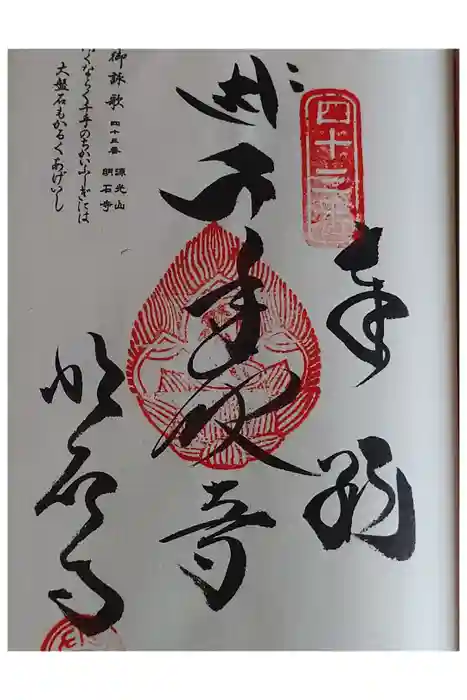 四十三番
奉納
千手観音
明石寺
御詠歌 四十三番 源光山 明石寺
くならく千手のちかいふしぎには
大盤石もかるくあげいし